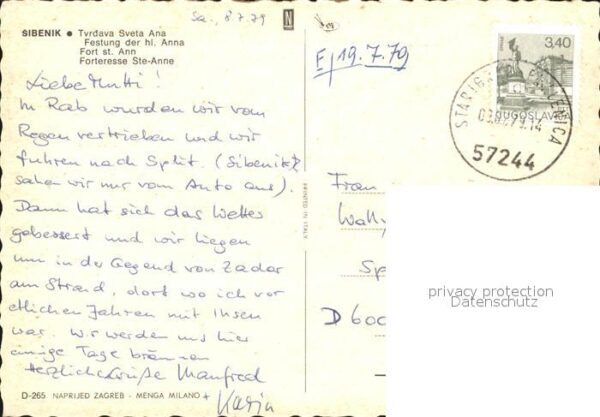 Sa., 8.7.79
N
ŠIBENIK ● Tvrđava Sveta Ana
Festung der hl. Anna
Fort st. Ann
Forteresse Ste-Anne
Liebe Mutti!
In Rab wurden wir vom
Regen vertrieben und wir
fuhren nach Split. (Sibenik
sahen wir nur vom Auto aus).
Dann hat sich das Wetter
gebessert und wir liegen
nun in der Gegend von Zadar
am Strand, dort wo ich vor
etlichen Jahren mit Ihnen
war. Wir werden uns hier
einige Tage bräunen
Herzliche Grüße Manfred
+ Karin
D-265 NAPRIJED ZAGREB - MENGA MILANO
PRINTED IN ITALY
E/19.7.79
3,40
JUGOSLAVIJA
STARIGRAD PAKLENICA
57244
Frau
Wally
Sp
D 600
privacy protection
Datenschutz